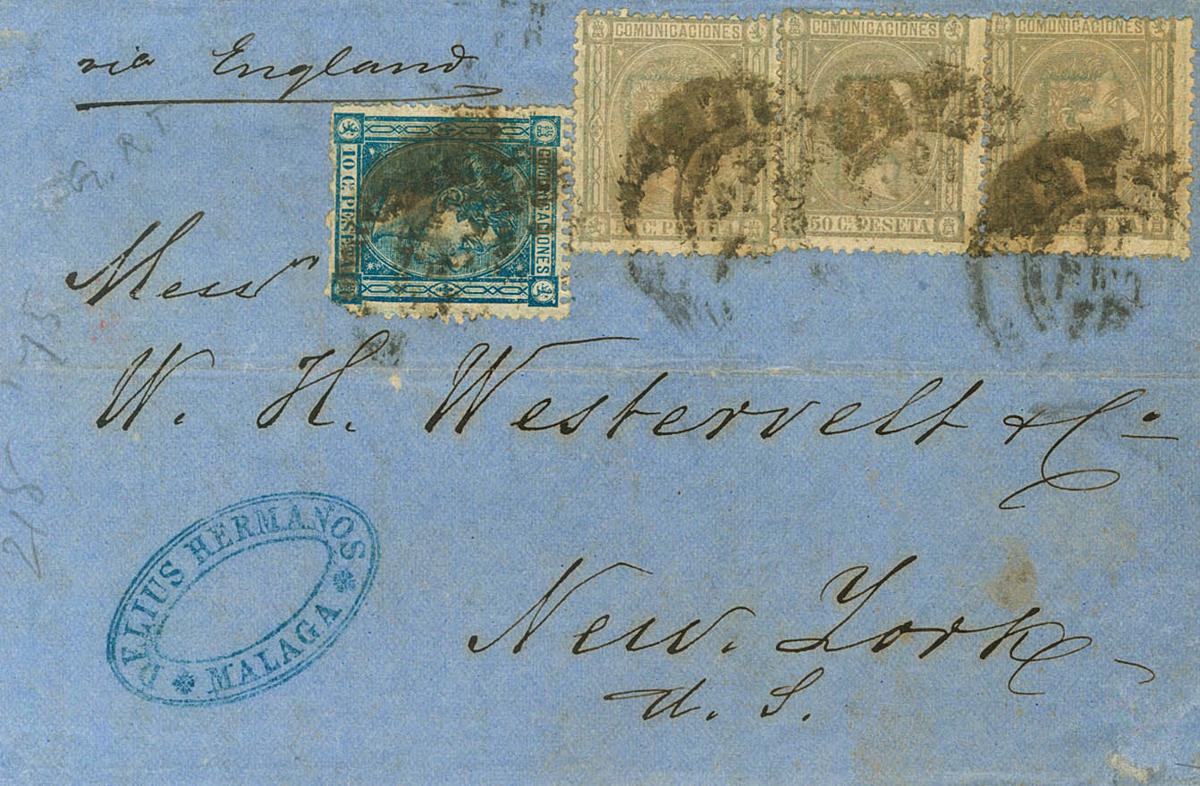 via England
COMUNICACIONES
COMUNICACIONES
COMUNICACIONES
10 C. PESETA
COMUNICACIONES
50 C. PESETA
Mess rs
W. H. Westervelt & Co.
DELIUS HERMANOS
MALAGA
New. York
U. S.
75
215